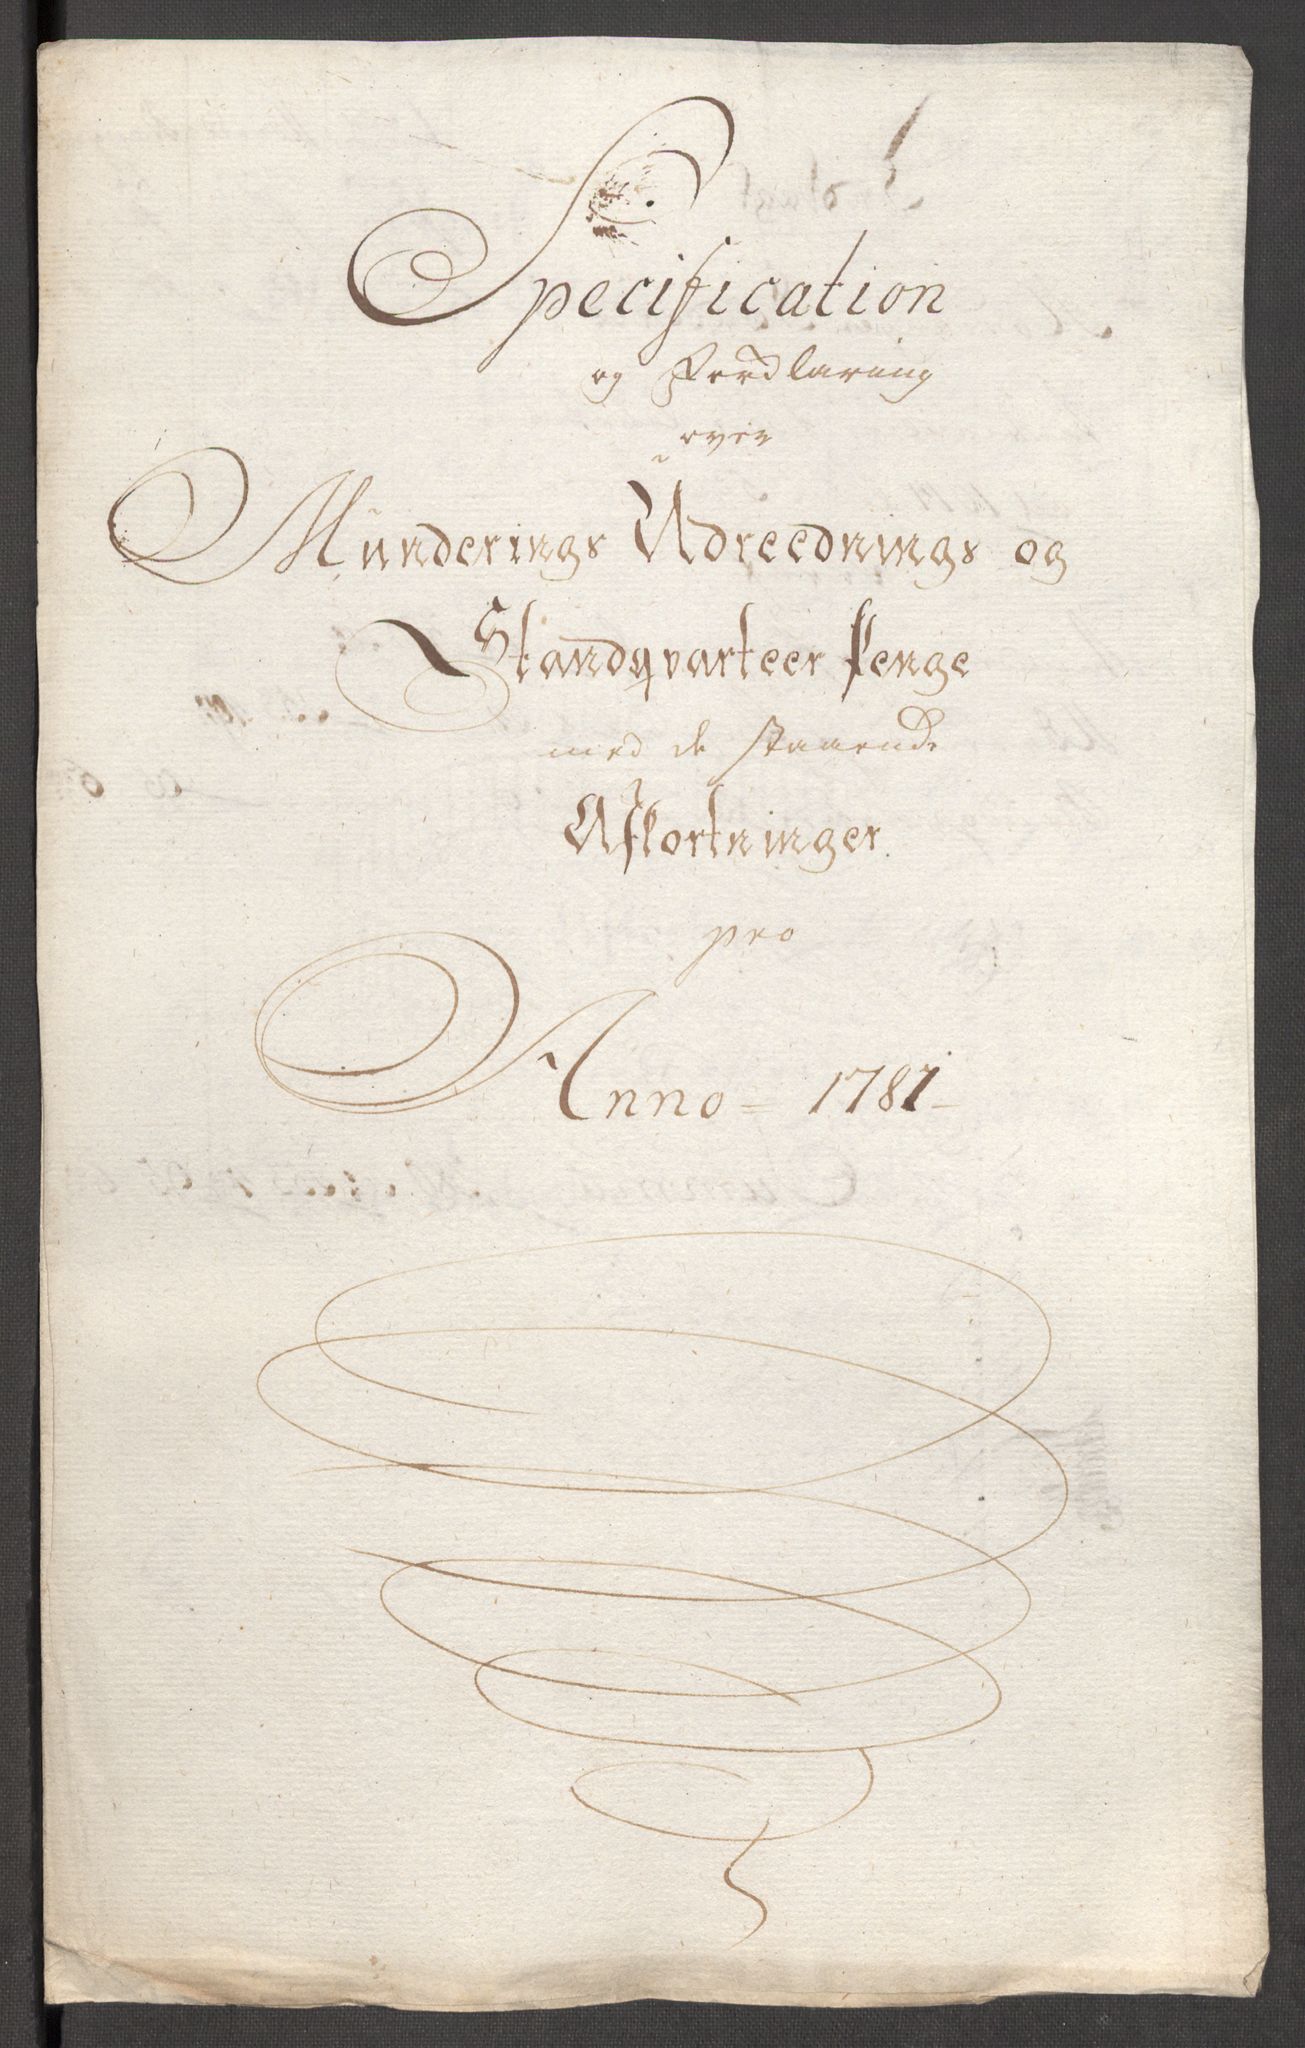 Specification
og Forklaring
over
Munderings Udreednings og
Standqvarteer Penge
med de staaende
Afkortninger
pro
Anno = 1781